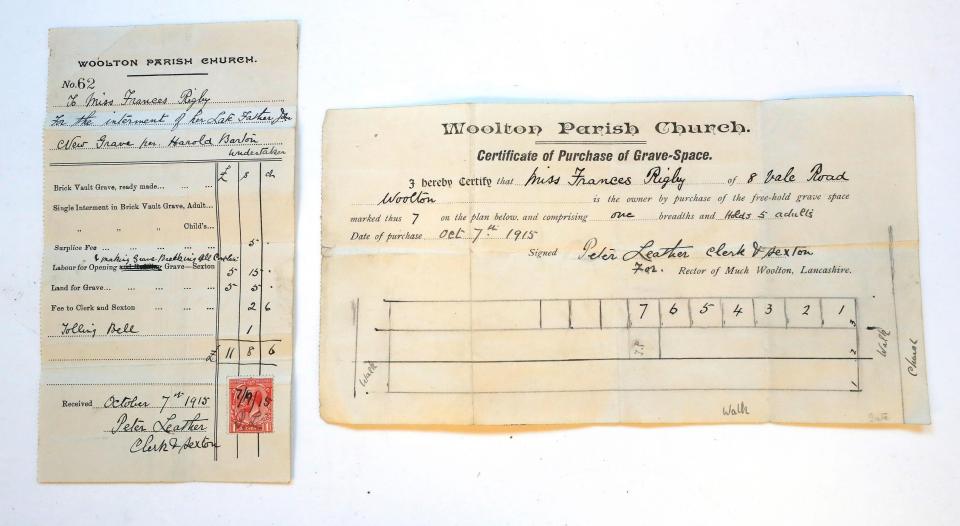 WOOLTON PARISH CHURCH.
No. 62
To Miss Frances Rigby
For the interment of her Late Father John
New Grave per. Harold Barton
undertaker
£ s d
Brick Vault Grave, ready made... ... ...
Single Interment in Brick Vault Grave, Adult...
" " " Child's...
Surplice Fee ... 5 .
& making Grave Bookkeeping
Labour for Opening Grave—Sexton 5 15 .
Land for Grave... ... ... ... 5 5 .
Fee to Clerk and Sexton ... ... ... 2 6
Tolling Bell 1
£ 11 8 6
Received October 7th 1915
Peter Leather
Clerk & Sexton
Woolton Parish Church.
Certificate of Purchase of Grave-Space.
I hereby Certify that Miss Frances Rigby of 8 Vale Road
Woolton is the owner by purchase of the free-hold grave space
marked thus 7 on the plan below and comprising one breadths and Holds 5 adults
Date of purchase Oct 7th 1915
Signed Peter Leather Clerk & Sexton
For. Rector of Much Woolton, Lancashire.
7 6 5 4 3 2 1
3
2
1
Walk
Walk
Church
Walk